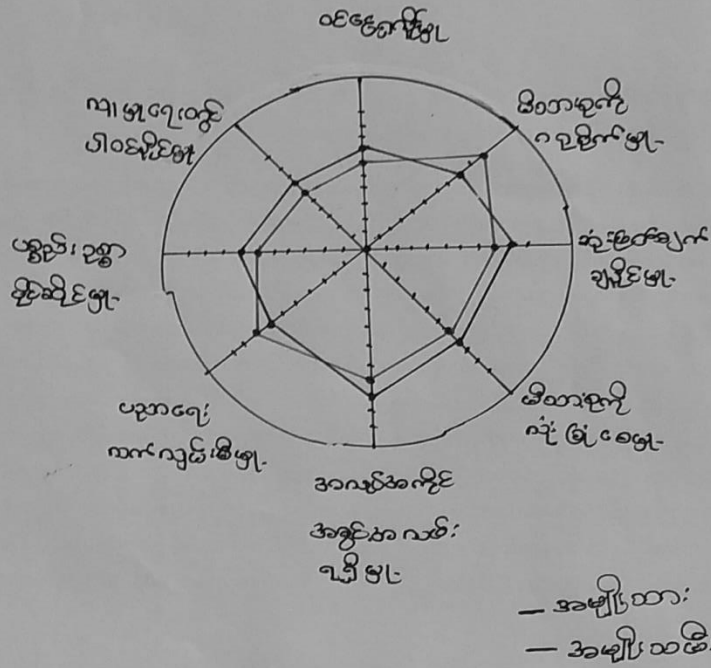 ဝင်ငွေရနိုင်မှု
မိသားစုကို
ဂရုစိုက်မှု
ဆုံးဖြတ်ချက်
ချနိုင်မှု
မိသားစုကို
လုံခြုံစေမှု
အလုပ်အကိုင်
အခွင့်အလမ်း
ရရှိမှု
ပညာရေး
လက်လှမ်းမီမှု
ပစ္စည်းဥစ္စာ
ပိုင်ဆိုင်မှု
ကာမှုရေးတွင်
ပါဝင်နိုင်မှု
— အမျိုးသား
— အမျိုးသမီး